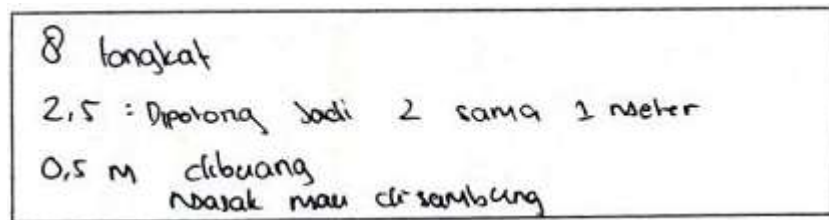 8 tongkat
2,5 : Dipotong Jadi 2 sama 1 meter
0,5 m dibuang
masak mau disambung